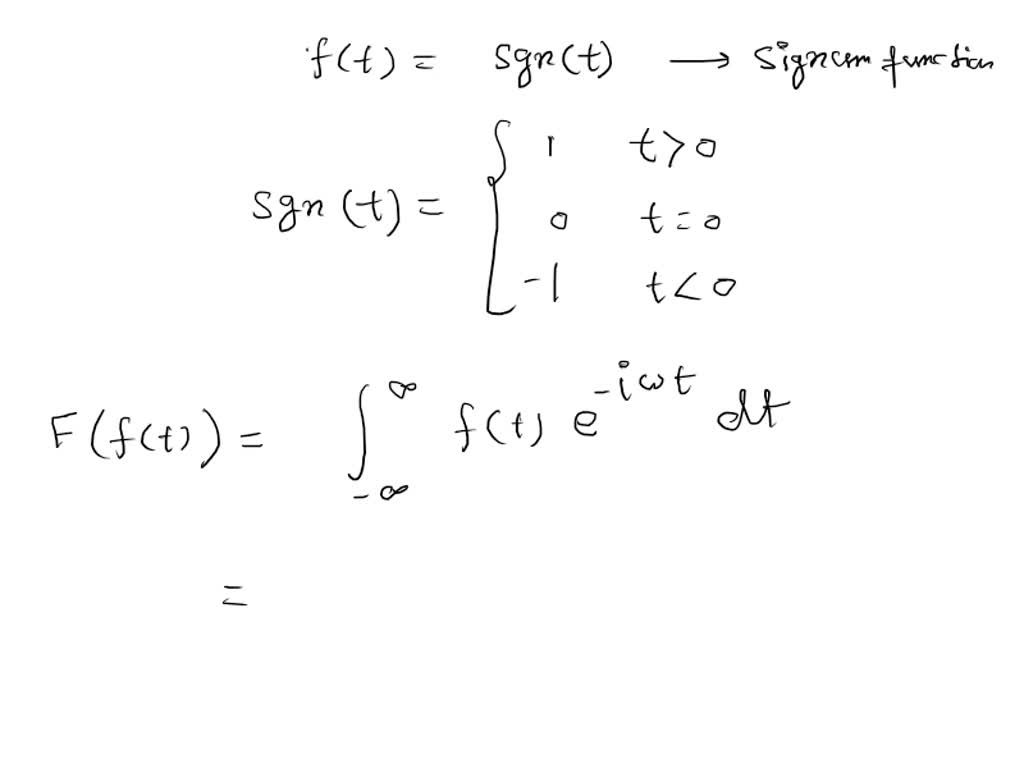 f(t) = sgn(t) → Signum function
sgn(t) = { 1 t>0
0 t=0
-1 t<0
F(f(t)) = ∫_{-∞}^{∞} f(t) e^{-iωt} dt
=